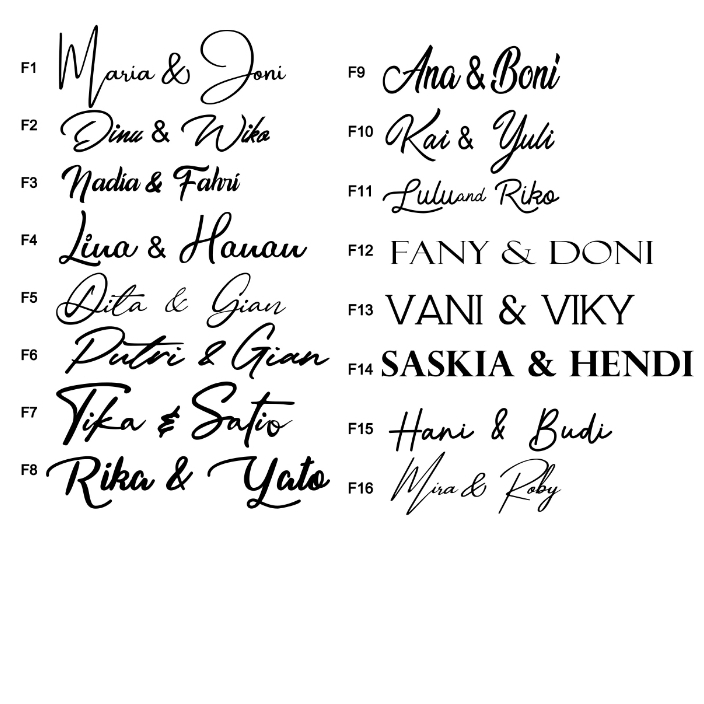 F1 Maria & Joni
F2 Dinu & Wiko
F3 Nadia & Fahri
F4 Lina & Hanan
F5 Dita & Gian
F6 Putri & Gian
F7 Tika & Satio
F8 Rika & Yato
F9 Ana & Boni
F10 Kai & Yuli
F11 Lulu and Riko
F12 FANY & DONI
F13 VANI & VIKY
F14 SASKIA & HENDI
F15 Hani & Budi
F16 Mira & Roby